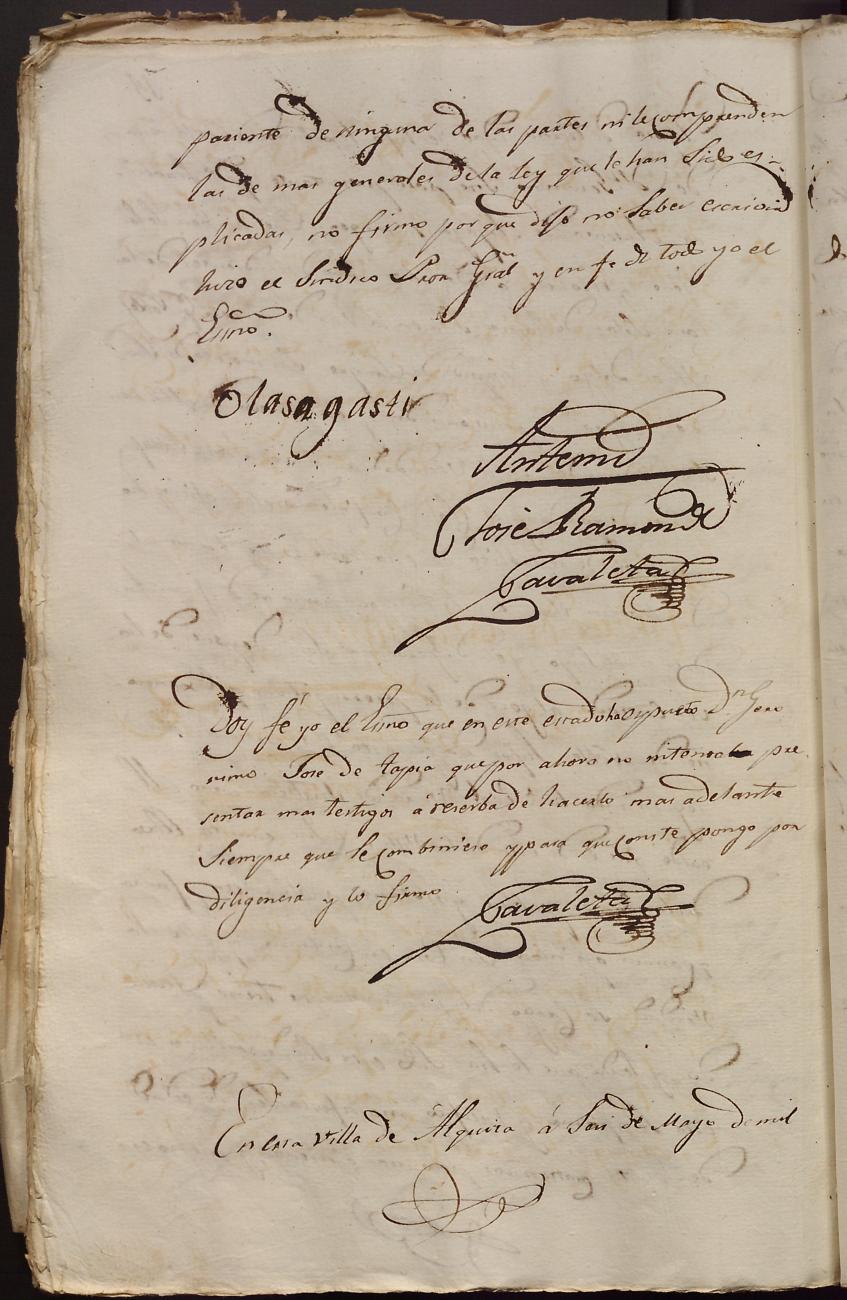 pariente de ninguna de las partes ni le comprenden
las de mas generales de la ley que le han Sido es-
plicadas, no firmo por que dijo no Saber escrivir
hizo el Sindico Pror Gral y en fe de todo yo el
Esno.
Olasagasti
Antemi
José Ramon de
Zavaleta
Doy fé yo el Esno que en este estado ha espuesto Dn Gero
nimo Jose de tapia que por ahora no intenta pre
sentar mas testigos á reserba de hacerlo mas adelante
Siempre que le combiniese y para que conste pongo por
diligencia y lo firmo
Zavaleta
En esta Villa de Alquiza á Seis de Mayo de mil